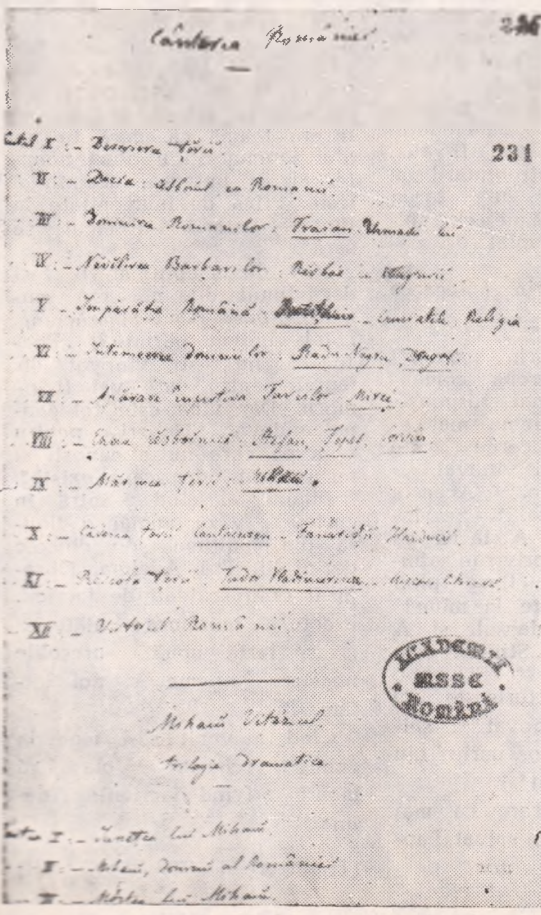 Cântarea României
231
Cântul I : - Descrierea țării.
II : - Dacia : Resboiul cu Romanii.
III : - Domnirea Romanilor : Traian. Urmașii lui
IV : - Năvălirea Barbarilor. Resboe
V : - Împărăția Română - Cruciatele. Religia
VI : - Întemeerea domniilor. Radu Negru, Dragoș.
VII : - Apărare împotriva Turcilor Mircé.
VIII : - Epoca resboinică : Ștefan, Țepeș, Corvin
IX : - Mărirea țării : Mihaiŭ.
X : - Căderea țării Cantacuzen - Fanarioții Haiducii.
XI : - Rescóla țării. Tudor Vladimirescu.
XII : - Viitorul României
ACADEMIA
MSSE
Română
Mihaiŭ Vitézul.
trilogie dramatica
Partea I : - Junețea lui Mihaiŭ.
II : - Mihaiŭ, domnŭ al României
III : - Mórtea lui Mihaiŭ.